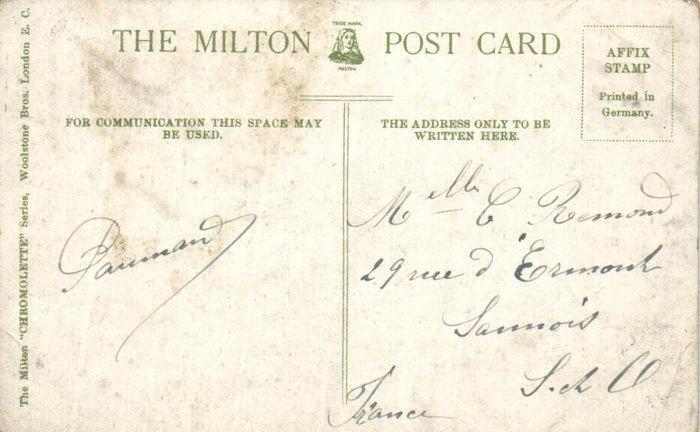 THE MILTON POST CARD
TRADE MARK.
MILTON
AFFIX
STAMP
Printed in
Germany.
FOR COMMUNICATION THIS SPACE MAY
BE USED.
THE ADDRESS ONLY TO BE
WRITTEN HERE.
The Milton "CHROMOLETTE" Series, Woolstone Bros. London E. C.
Melle C Remond
29 rue d'Ermont
Sannois
S. et O
France